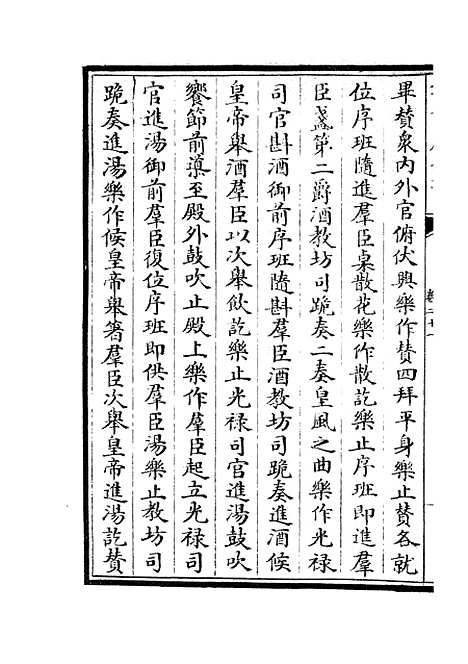 畢贊衆内外官俯伏興樂作贊四拜平身樂止贊各就
位序班隨進羣臣桌散花樂作散訖樂止序班即進羣
臣盞第二爵酒教坊司跪奏二奏皇風之曲樂作光禄
司官斟酒御前序班隨斟羣臣酒教坊司跪奏進酒候
皇帝舉酒羣臣以次舉飲訖樂止光禄司官進湯鼓吹
饗節前導至殿外鼓吹止殿上樂作羣臣起立光禄司
官進湯御前羣臣復位序班即供羣臣湯樂止教坊司
跪奏進湯樂作候皇帝舉箸羣臣次舉皇帝進湯訖贊